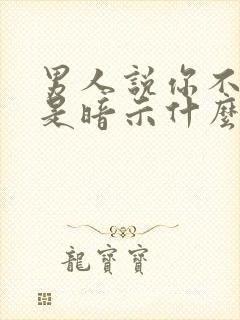 男人說你不
是暗示什麼
龍寶寶